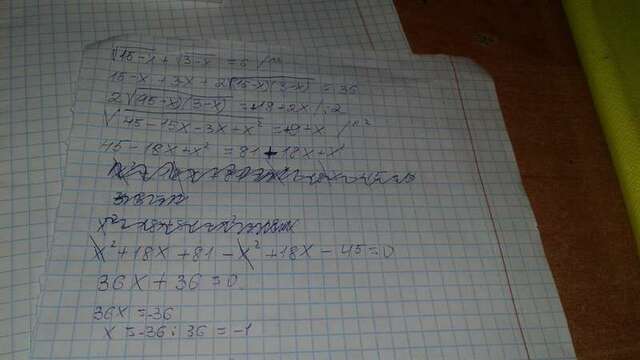 √15-x + √3-x = 6 /^2
15-x + 3x + 2√(15-x)(3-x) = 36
2√(15-x)(3-x) = +18+2x /:2
√45-15x-3x+x² = +9+x /^2
45-18x+x² = 81+18x+x²
x²+18x+81-x²+18x-45=0
36x+36=0
36x=-36
x=-36:36=-1